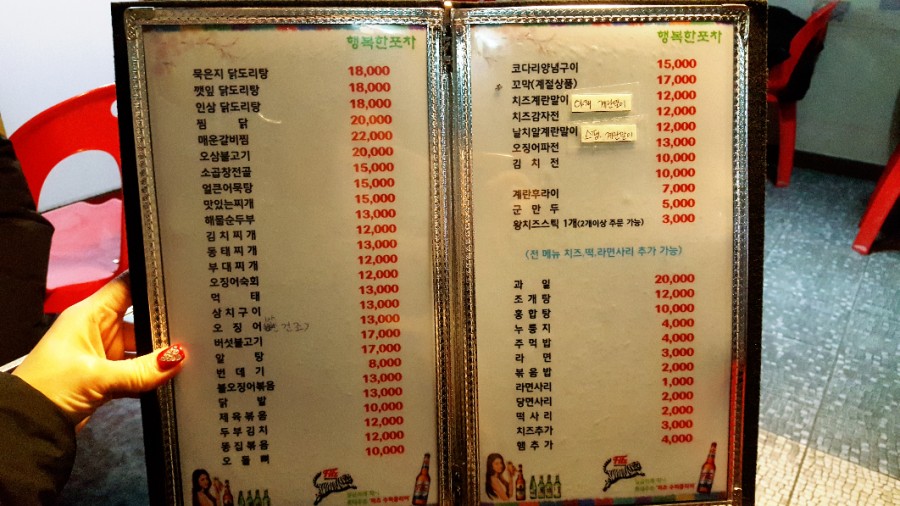 행복한포차
묵은지 닭도리탕 18,000
깻잎 닭도리탕 18,000
인삼 닭도리탕 18,000
찜 닭 20,000
매운갈비찜 22,000
오삼불고기 20,000
소곱창전골 15,000
얼큰어묵탕 15,000
맛있는찌개 15,000
해물순두부 13,000
김 치 찌 개 12,000
동 태 찌 개 13,000
부 대 찌 개 12,000
오징어숙회 12,000
먹 태 13,000
삼 치 구 이 13,000
오 징 어 건조) 13,000
버섯불고기 17,000
알 탕 17,000
번 데 기 8,000
불오징어볶음 13,000
닭 발 13,000
제 육 볶 음 10,000
두 부 김 치 12,000
똥 집 볶 음 12,000
오 돌 뼈 10,000
행복한포차
코다리양념구이 15,000
꼬막(계절상품) 17,000
치즈계란말이 야채 계란말이 12,000
치즈감자전 12,000
날치알계란말이 스팸 계란말이 12,000
오징어파전 13,000
김 치 전 10,000
10,000
계란후라이 7,000
군 만 두 5,000
왕치즈스틱 1개(2개이상 주문 가능) 3,000
(전 메뉴 치즈,떡,라면사리 추가 가능)
과 일 20,000
조 개 탕 12,000
홍 합 탕 10,000
누 룽 지 4,000
주 먹 밥 4,000
라 면 3,000
볶 음 밥 2,000
라면사리 1,000
당면사리 2,000
떡 사 리 2,000
치즈추가 3,000
햄 추 가 4,000